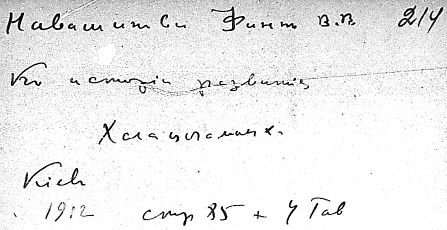 Навашин С и Финн В.В 214
Къ исторіи развитія
Халазогамных.
Кіев
1912 стр 85 + 4 Таб